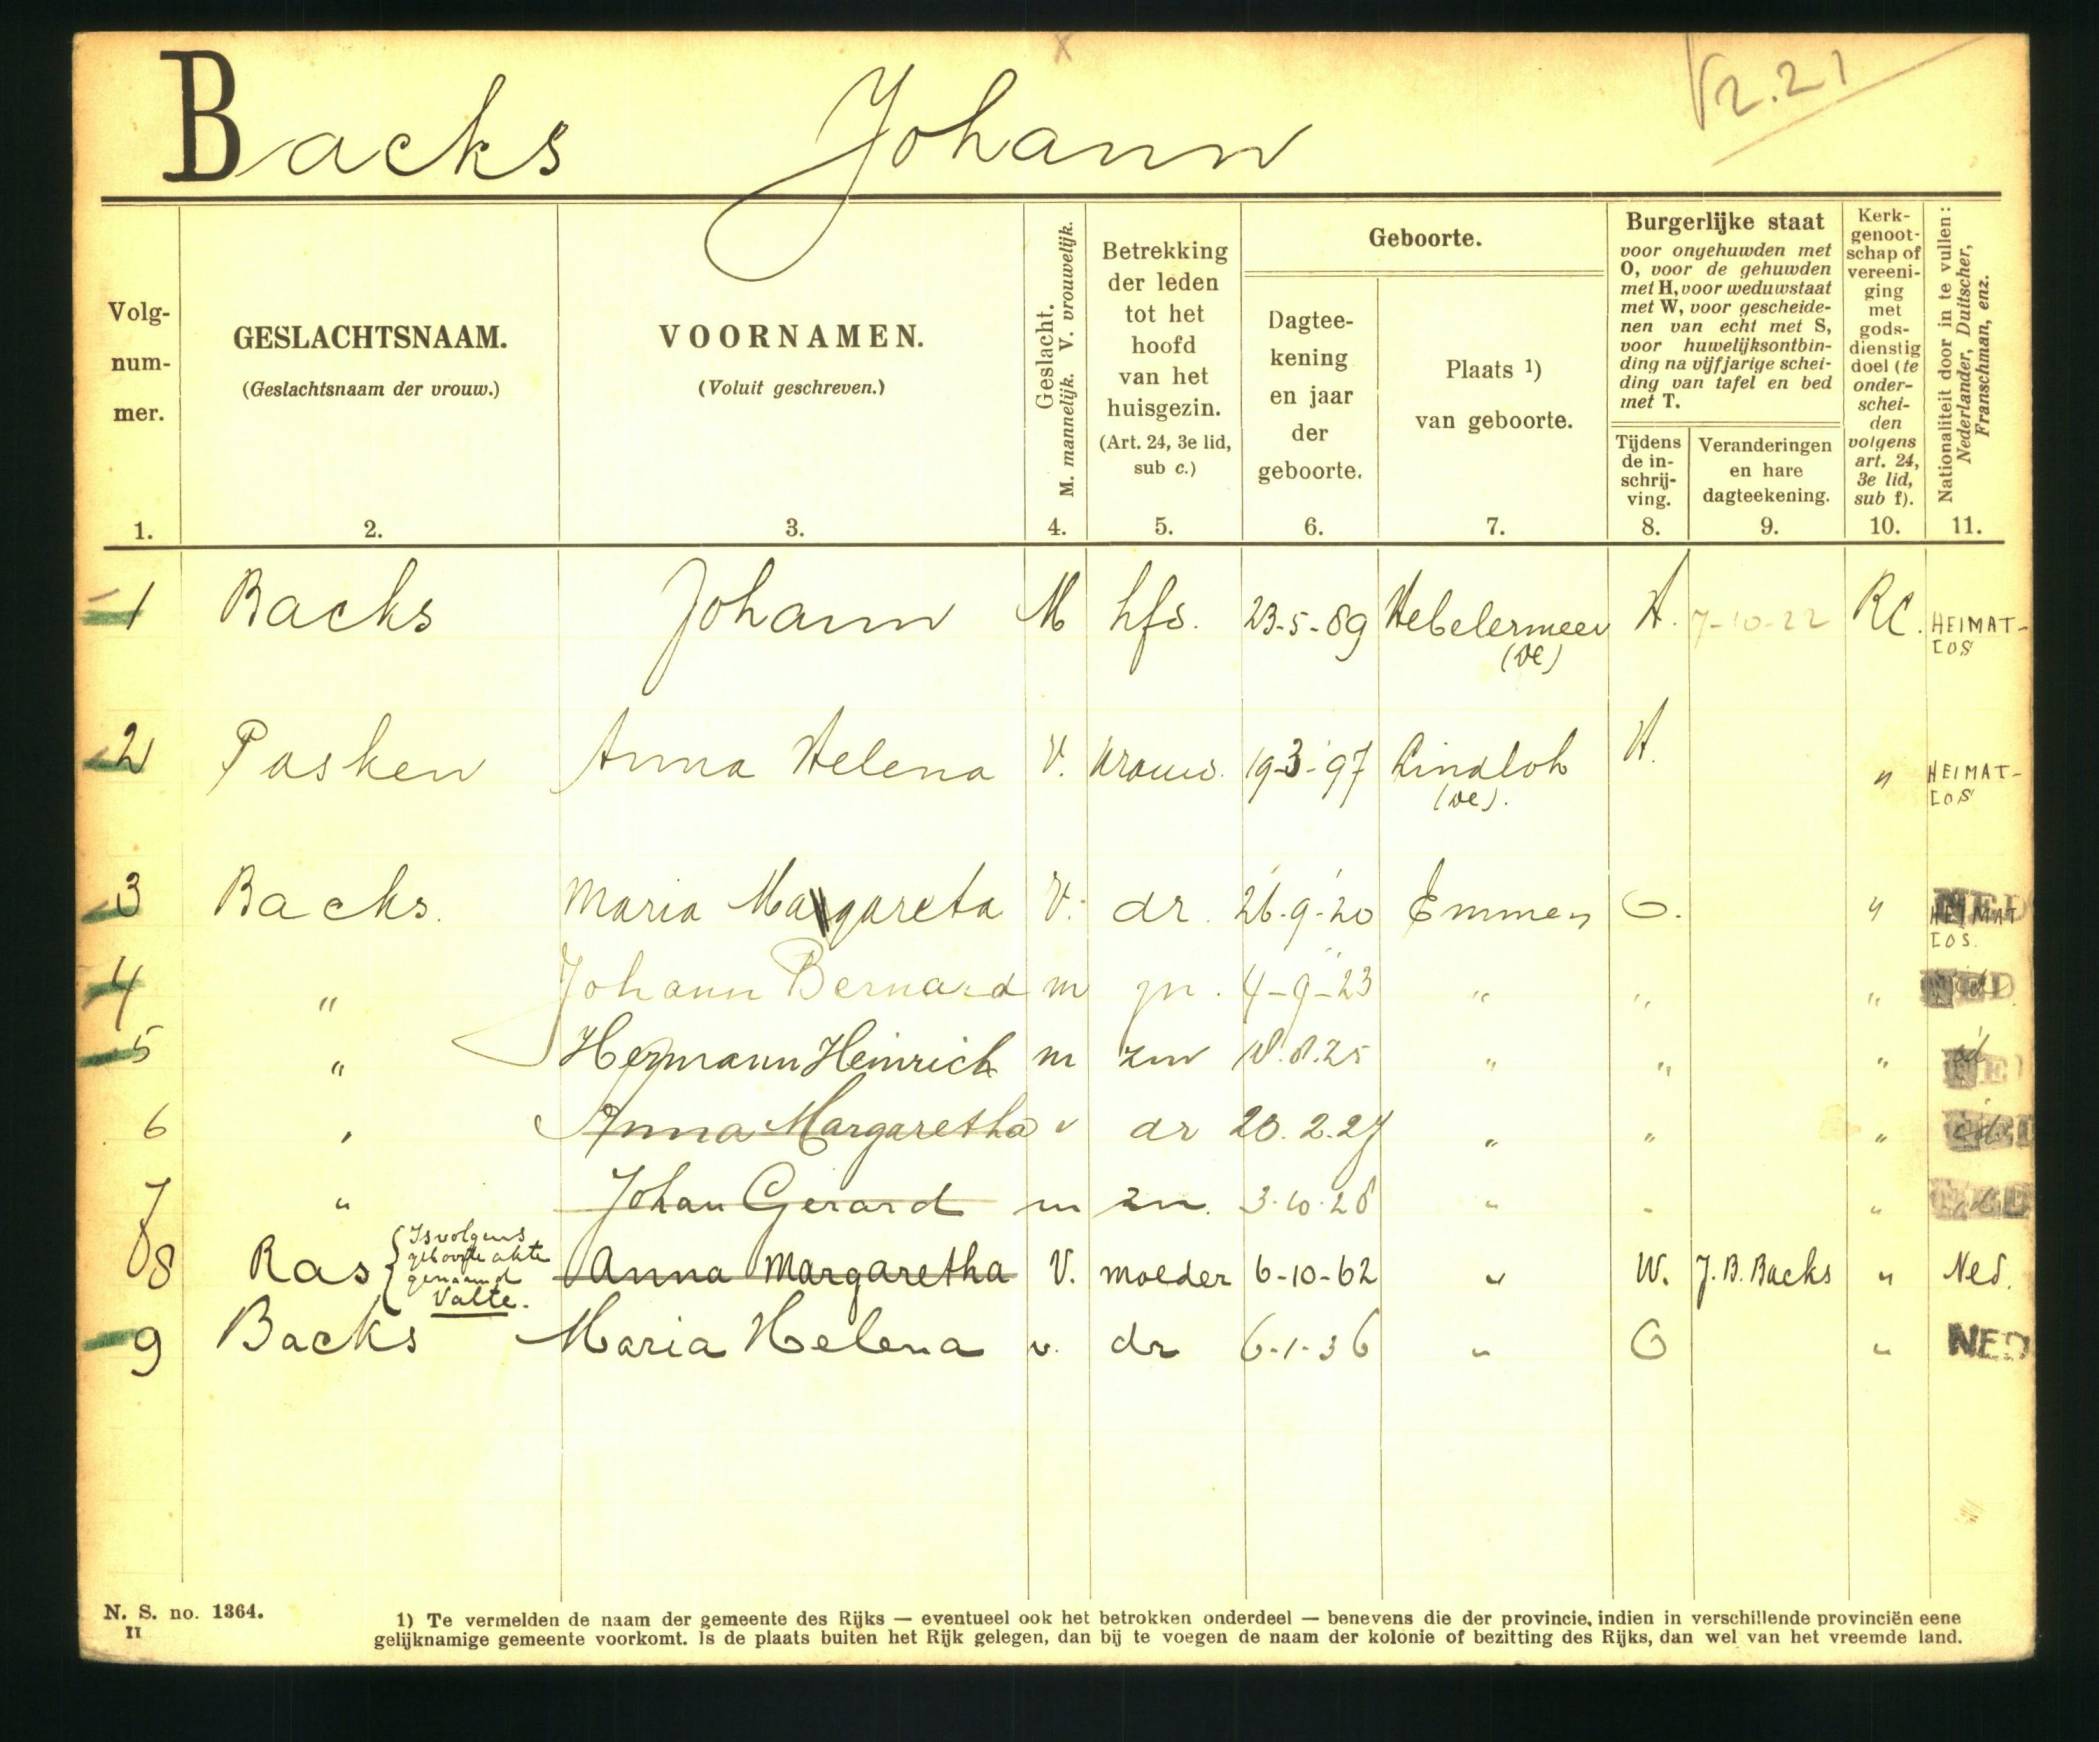 Backs Johann
V2.21
Volg-
num-
mer.
1.
GESLACHTSNAAM.
(Geslachtsnaam der vrouw.)
2.
VOORNAMEN.
(Voluit geschreven.)
3.
Geslacht.
M. mannelijk. V. vrouwelijk.
4.
Betrekking
der leden
tot het
hoofd
van het
huisgezin.
(Art. 24, 3e lid,
sub c.)
5.
Geboorte.
Dagtee-
kening
en jaar
der
geboorte.
6.
Plaats 1)
van geboorte.
7.
Burgerlijke staat
voor ongehuwden met
O, voor de gehuwden
met H, voor weduwstaat
met W, voor gescheide-
nen van echt met S,
voor huwelijksontbin-
ding na vijfjarige schei-
ding van tafel en bed
met T.
Tijdens
de in-
schrij-
ving.
8.
Veranderingen
en hare
dagteekening.
9.
Kerk-
genoot-
schap of
vereeni-
ging
met
gods-
dienstig
doel (te
onder-
schei-
den
volgens
art. 24,
3e lid,
sub f).
10.
Nationaliteit door in te vullen:
Nederlander, Duitscher,
Franschman, enz.
11.
1 Backs Johann M hfs. 23-5-89 Hebelermeer H. 7-10-22 RC. HEIMAT-
(De) LOS
2 Pasken Anna Helena V. vrouw. 19-3-97 Lindloh H. " HEIMAT-
(De). LOS
3 Backs. Maria Margareta V. dr. 26-9-20 Emmen O. " HEIMAT
LOS.
4 " Johann Bernard m zn. 4-9-23 " " " NED
5 " Hermann Heinrich m zn .25 " " "
6 " Anna Margaretha v dr 20.2.27 " " "
7 " Johan Gerard m zn. 3-10-28 " " "
8 Ras {Is volgens
geboorte akte
genaamd
Valte.
Anna Margaretha V. moeder 6-10-62 " W. J.B. Backs " Ned.
9 Backs Maria Helena v. dr 6-1-36 " O " NED
N. S. no. 1364.
II
1) Te vermelden de naam der gemeente des Rijks — eventueel ook het betrokken onderdeel — benevens die der provincie, indien in verschillende provinciën eene
gelijknamige gemeente voorkomt. Is de plaats buiten het Rijk gelegen, dan bij te voegen de naam der kolonie of bezitting des Rijks, dan wel van het vreemde land.